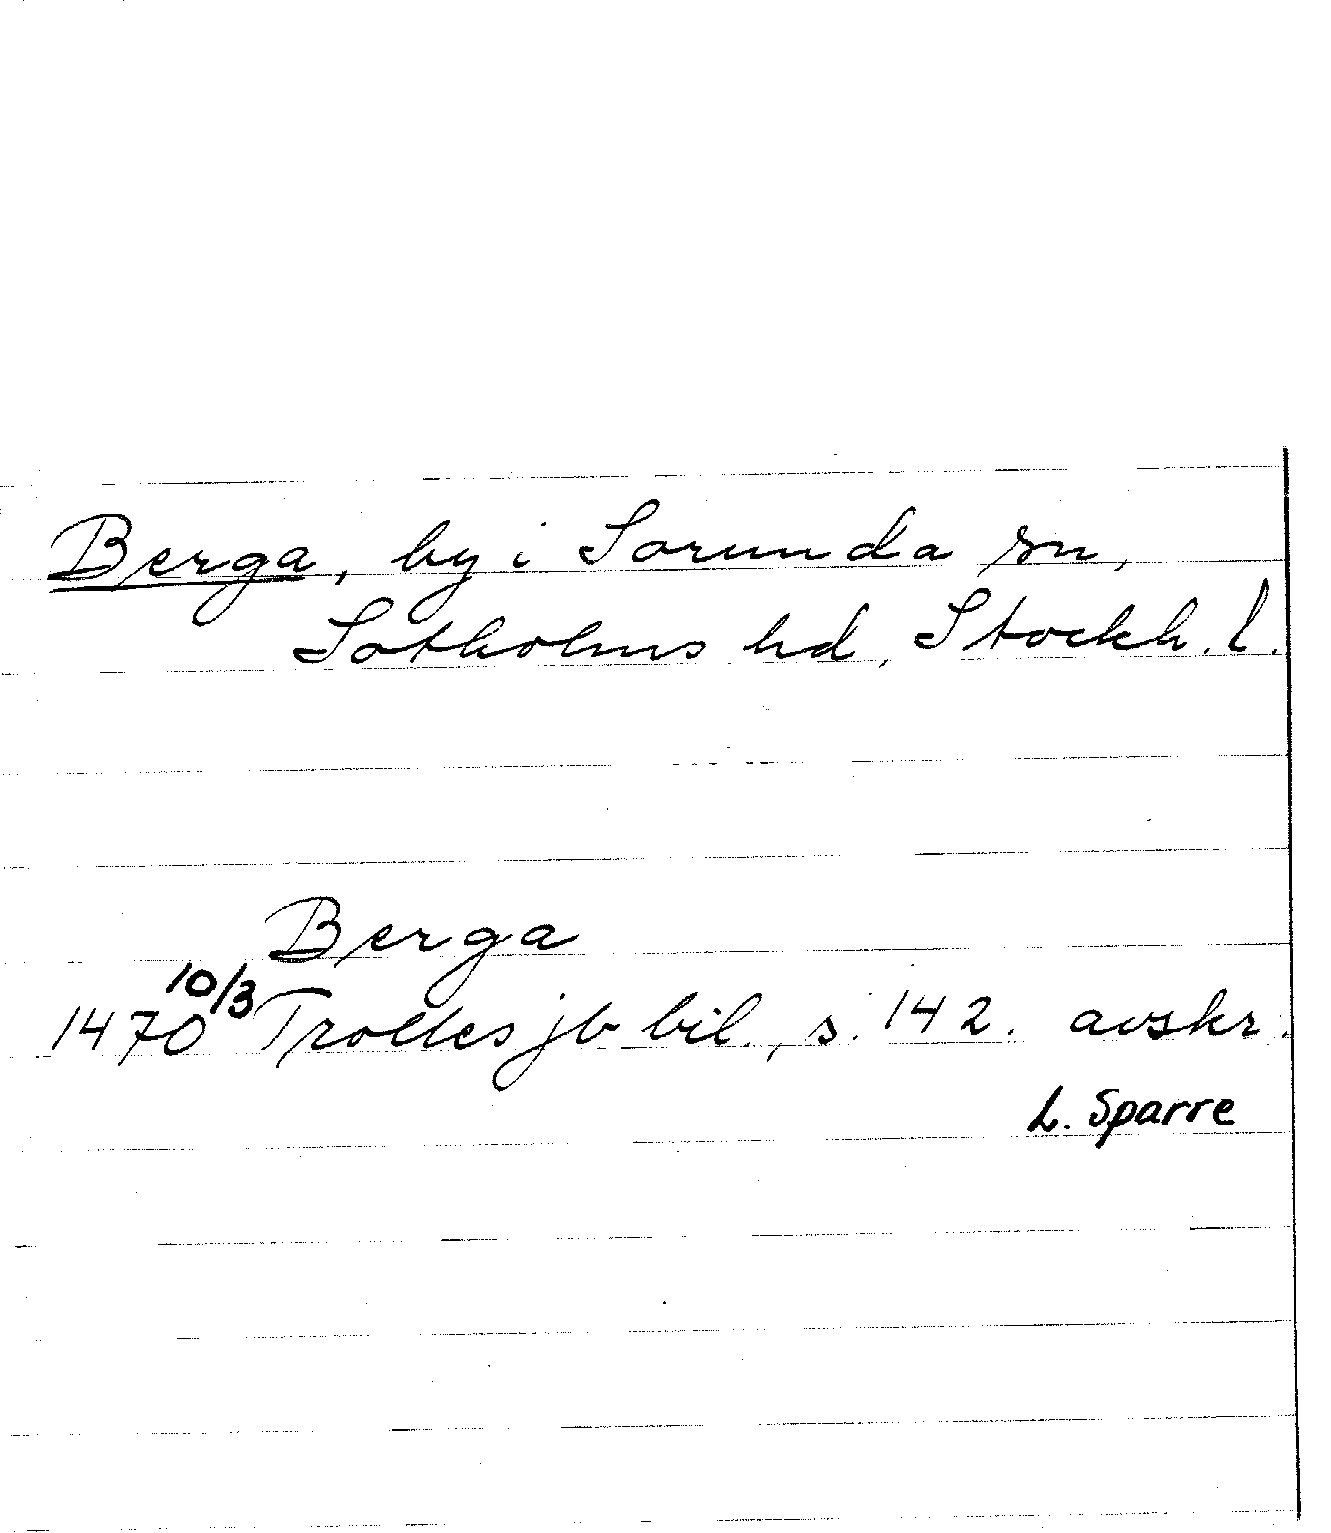 Berga, by i Sorunda sn,
Sotholms hd, Stockh. l.
Berga
1470 10/3 Trolles jb bil., s. 142. avskr.
L. Sparre